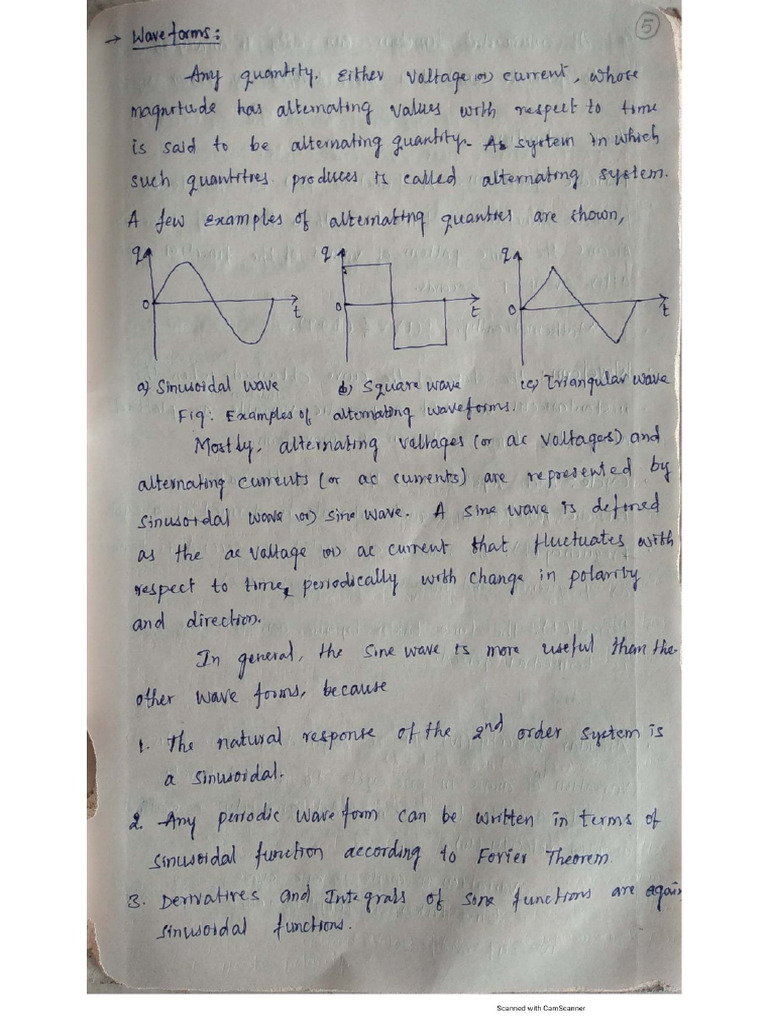 5
→ Wave forms:
Any quantity. Either voltage or) current, whose
magnitude has alternating values with respect to time
is said to be alternating quantity. As system in which
such quantities produces is called alternating system.
A few examples of alternating quanties are shown,
q q q
0 t 0 t 0 t
a) Sinusoidal wave b) Square wave (c) Triangular wave
Fig: Examples of alternating waveforms.
Mostly, alternating voltages (or ac voltages) and
alternating currents (or ac currents) are represented by
sinusoidal wave or) sine wave. A sine wave is defined
as the ac voltage or) ac current that fluctuates with
respect to time, periodically with change in polarity
and direction.
In general, the sine wave is more useful than the
other wave forms, because
1. The natural response of the 2nd order system is
a sinusoidal.
2. Any periodic wave form can be written in terms of
sinusoidal function according to Forier Theorem.
3. Derivatives and Integrals of sine functions are again
sinusoidal functions.
Scanned with CamScanner